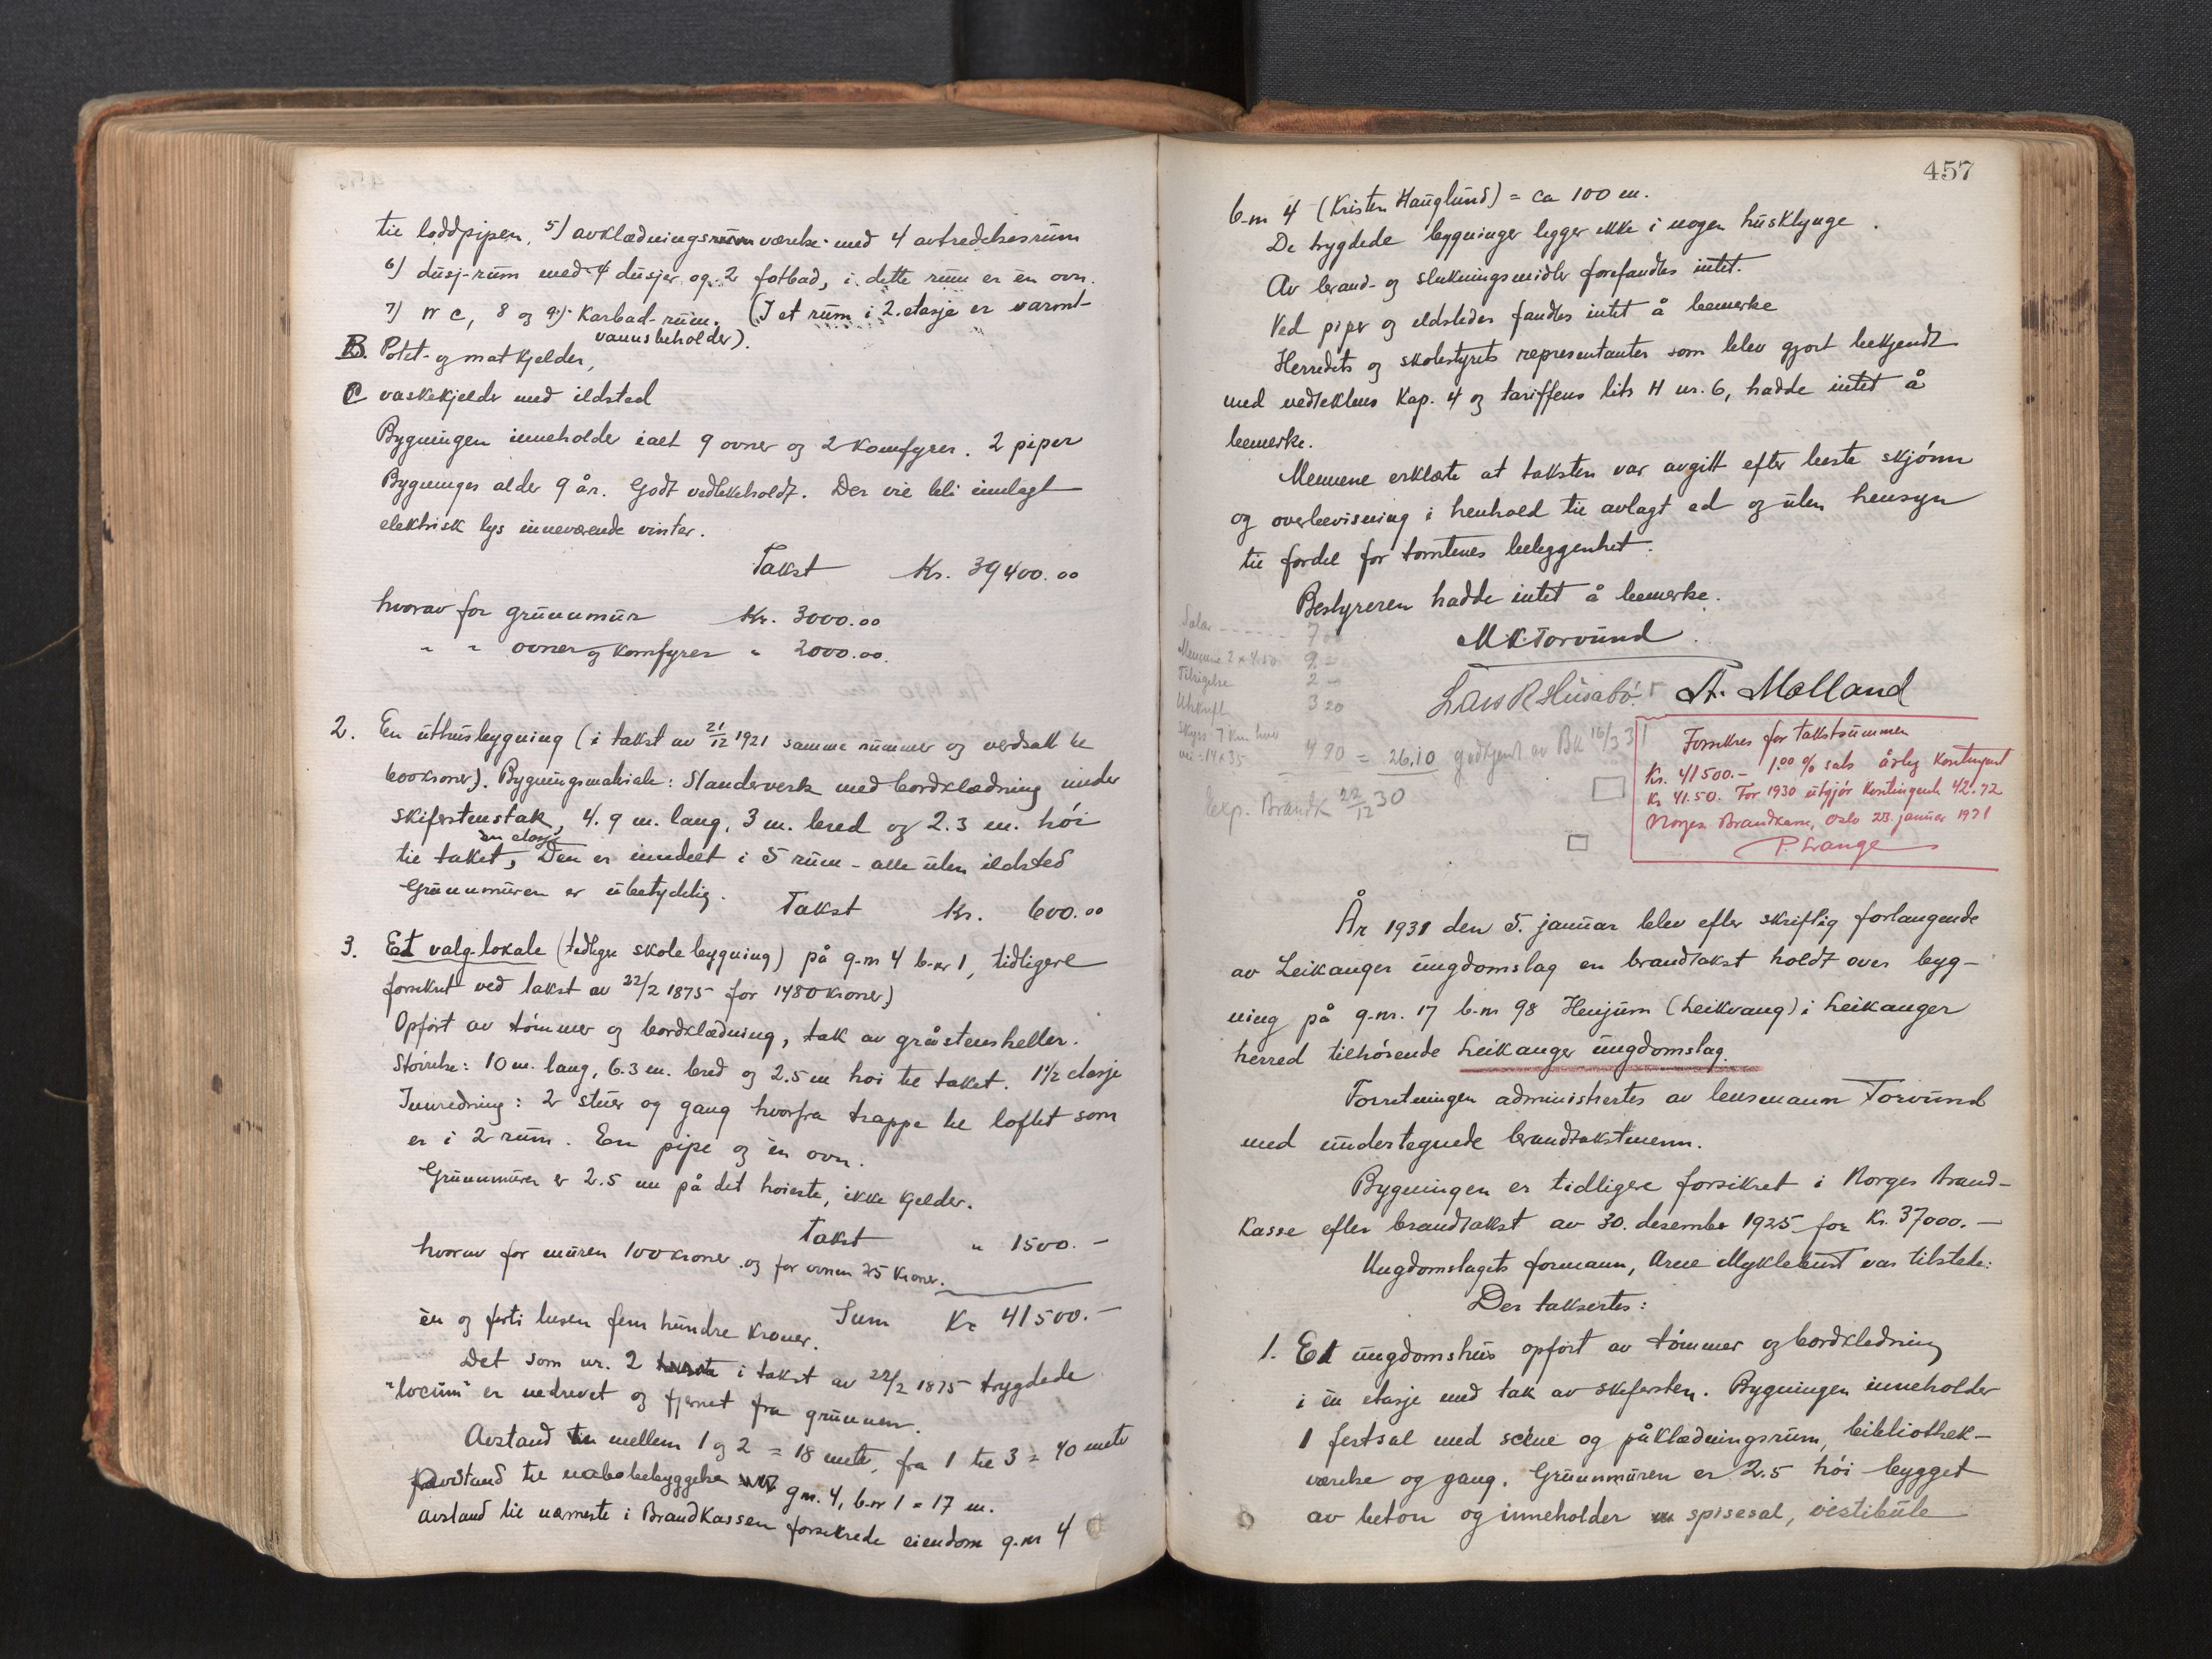 til loddpipen, 5) avklædningsrum værelse med 4 avtrædelsesrum
6) dusj-rum med 4 dusjer og 2 fotbad, i dette rum er èn ovn.
7) W C, 8 og 9) Karbad-rum. (I et rum i 2. etasje er varmt-
vannsbeholder).
B. Potet- og matkjelder,
C vaskekjelder med ildsted
Bygningen inneholder ialt 9 ovner og 2 komfyrer. 2 piper
Bygninges alder 9 år. Godt vedlikeholdt. Der vil bli innlagt
elektrisk lys inneværende vinter.
Takst Kr. 39400.00
hvorav for grunnmur Kr. 3000.00
" " ovner og komfyrer " 2000.00.
2. En uthusbygning (i takst av 21/12 1921 samme nummer og verdsatt til
600 kroner). Bygningsmateriale: Standerverk med bordklædning under
skifertenstak, 4.9 m. lang, 3 m. bred og 2.3 m. høi
èn etasje
til taket, Den er inndelt i 5 rum - alle uten ildsted
Grunnmuren er ubetydelig.
Takst Kr. 600.00
3. Et valg-lokale (tidligere skolebygning) på g-nr 4 b-nr 1, tidligere
forsikret ved takst av 22/2 1875 for 1480 kroner)
Opført av tømmer og bordklædning, tak av gråstensheller.
Størrelse: 10 m. lang, 6.3 m. bred og 2.5 m høi til taket. 1½ etasje
Innredning: 2 stuer og gang hvorfra trappe til loftet som
er i 2 rum. En pipe og èn ovn.
Grunnmuren er 2.5 m på det høieste, ikke kjelder.
Takst " 1500.-
hvorav for muren 100 kroner og for ovnen 25 kroner.
Sum Kr 41500.-
èn og førti tusen fem hundre kroner.
Det som nr. 2 i takst av 22/2 1875 trygdede
"locum" er nedrevet og fjernet fra grunnen.
Avstand mellem 1 og 2 = 18 meter, fra 1 til 3 = 40 meter
avstand til nabobebyggelse g nr. 4, b-nr 1 = 17 m.
avstand til nærmeste i Brandkassen forsikrede eiendom g-nr 4
457
b-nr 4 (Kristen Hauglund) = ca 100 m.
De trygdede bygninger ligger ikke i nogen husklynge.
Av brand- og slukningsmidler forefandtes intet.
Ved piper og ildsteder fandtes intet å bemerke
Herredets og skolestyrets representanter som blev gjort bekjendt
med vedtektens Kap. 4 og tariffens litr H nr. 6, hadde intet å
bemerke.
Mennene erklærte at taksten var avgitt efter beste skjønn
og overbevisning i henhold til avlagt ed og uten hensyn
til fordel for tomtenes beliggenhet.
Bestyreren hadde intet å bemerke.
M K Torvund
Lars R Husabø. A. Molland
Salær ------ 7 00
Mennene 2 x 4.50 9 -
Tilsigelse 2 -
Utskrift 3 20
Skyss 7 km hver
vei = 14 x 35 4 90 = 26.10 godkjent av BK 16/3 31
Exp. Brandk 22/12 30
Forsikres for takstsummen
Kr. 41500.- 1.00 % sats årlig kontingent
Kr 41.50. For 1930 utgjør kontingent 42.72
Norges Brandkasse, Oslo 23. januar 1931
P. Lange
År 1931 den 5. januar blev efter skriftlig forlangende
av Leikanger ungdomslag en brandtakst holdt over byg-
ning på g-nr. 17 b-nr 98 Henjum (Leikvang) i Leikanger
herred tilhørende Leikanger ungdomslag.
Forretningen administrertes av lensmann Torvund
med undertegnede brandtakstmenn.
Bygningen er tidligere forsikret i Norges Brand-
kasse efter brandtakst av 30. desember 1925 for Kr. 37000.-
Ungdomslagets formann, Arne Myklebust var tilstede:
Der taksertes:
1. Et ungdomshus opført av tømmer og bordkledning
i èn etasje med tak av skifersten. Bygningen inneholder
1 festsal med scene og påklædningsrum, bibliothek-
værelse og gang. Grunnmuren er 2.5 høi bygget
av beton og inneholder spisesal, vestibule